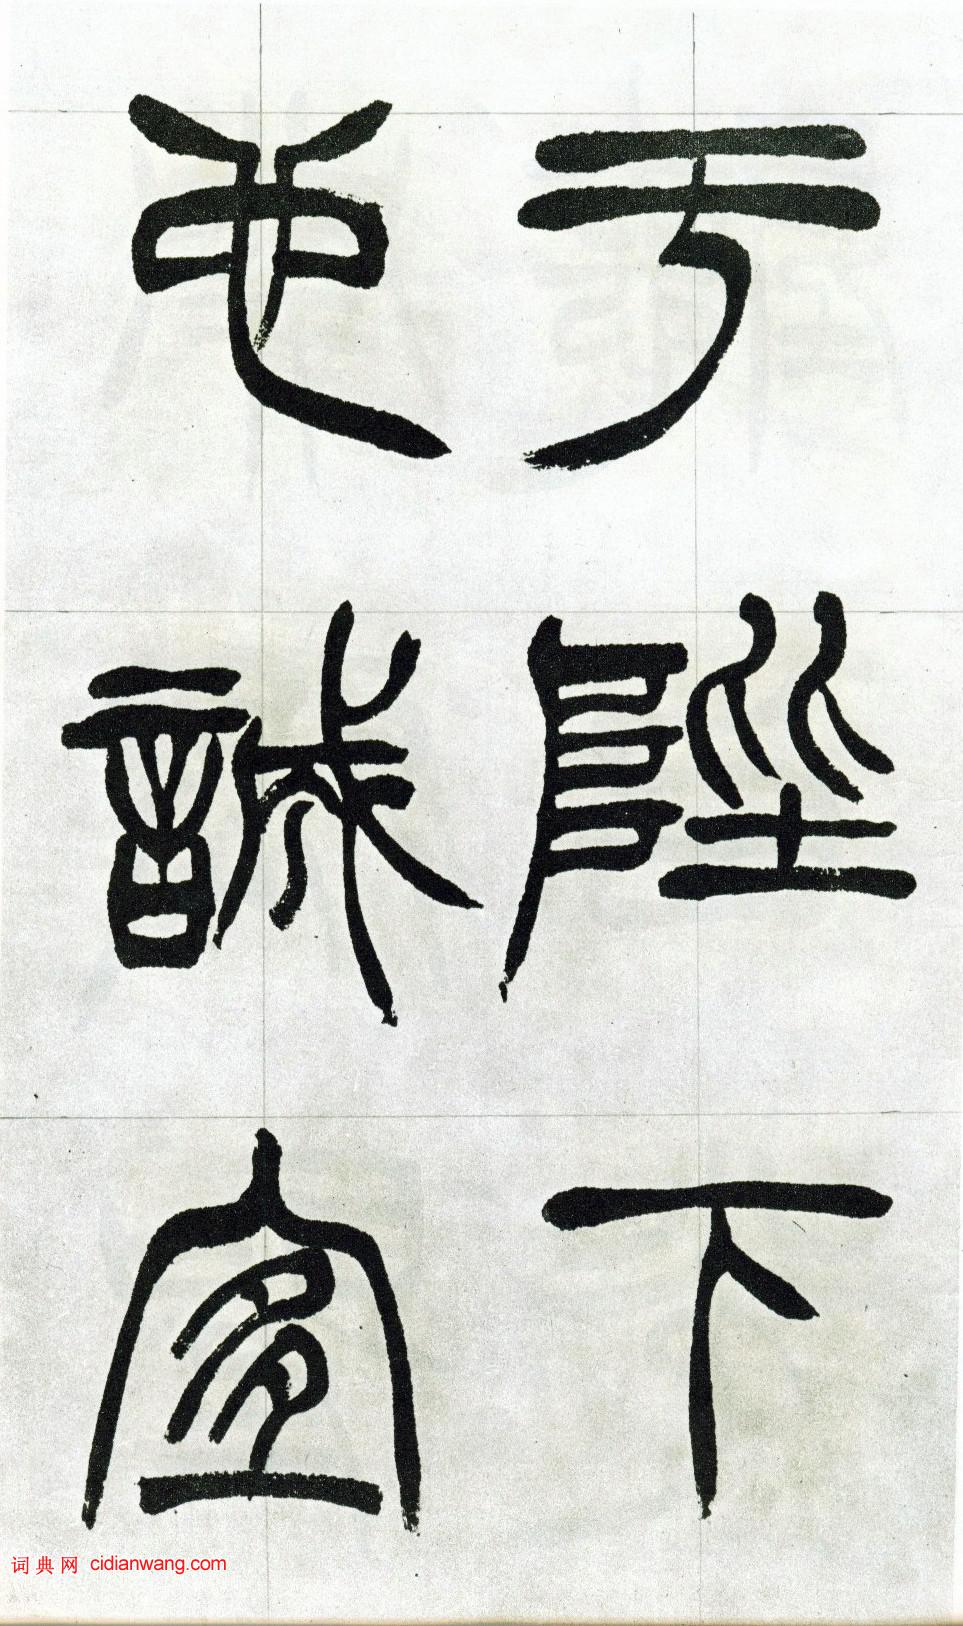 于陛下
也誠宜
词典网 cidianwang.com